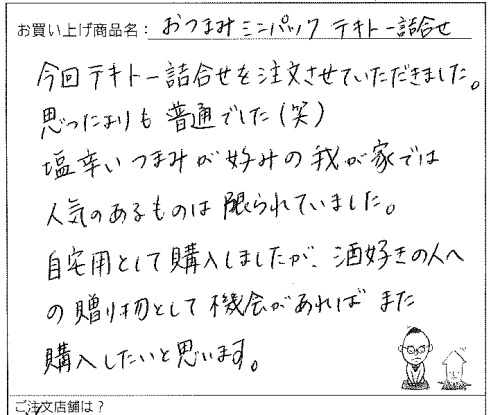 お買い上げ商品名： おつまみミニパック テキトー詰合せ
今回テキトー詰合せを注文させていただきました。
思ったよりも普通でした(笑)
塩辛いつまみが好みの我が家では
人気のあるものは限られていました。
自宅用として購入しましたが、酒好きの人へ
の贈り物として機会があればまた
購入したいと思います。
ご注文店舗は？